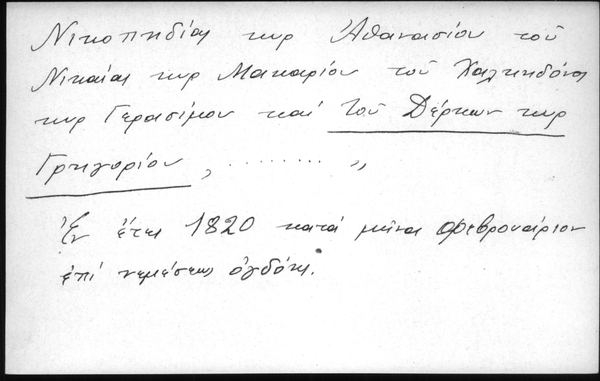 Νικομηδίας κυρ Ἀθανασίου τοῦ
Νικαίας κυρ Μακαρίου τοῦ Χαλκηδόνος
κυρ Γερασίμου καί τοῦ Δέρκων κυρ
Γρηγορίου, ......... "
Ἐν ἔτει 1820 κατά μῆνα Φεβρουάριον
ἐπί νεμέσεως ὀγδόης.